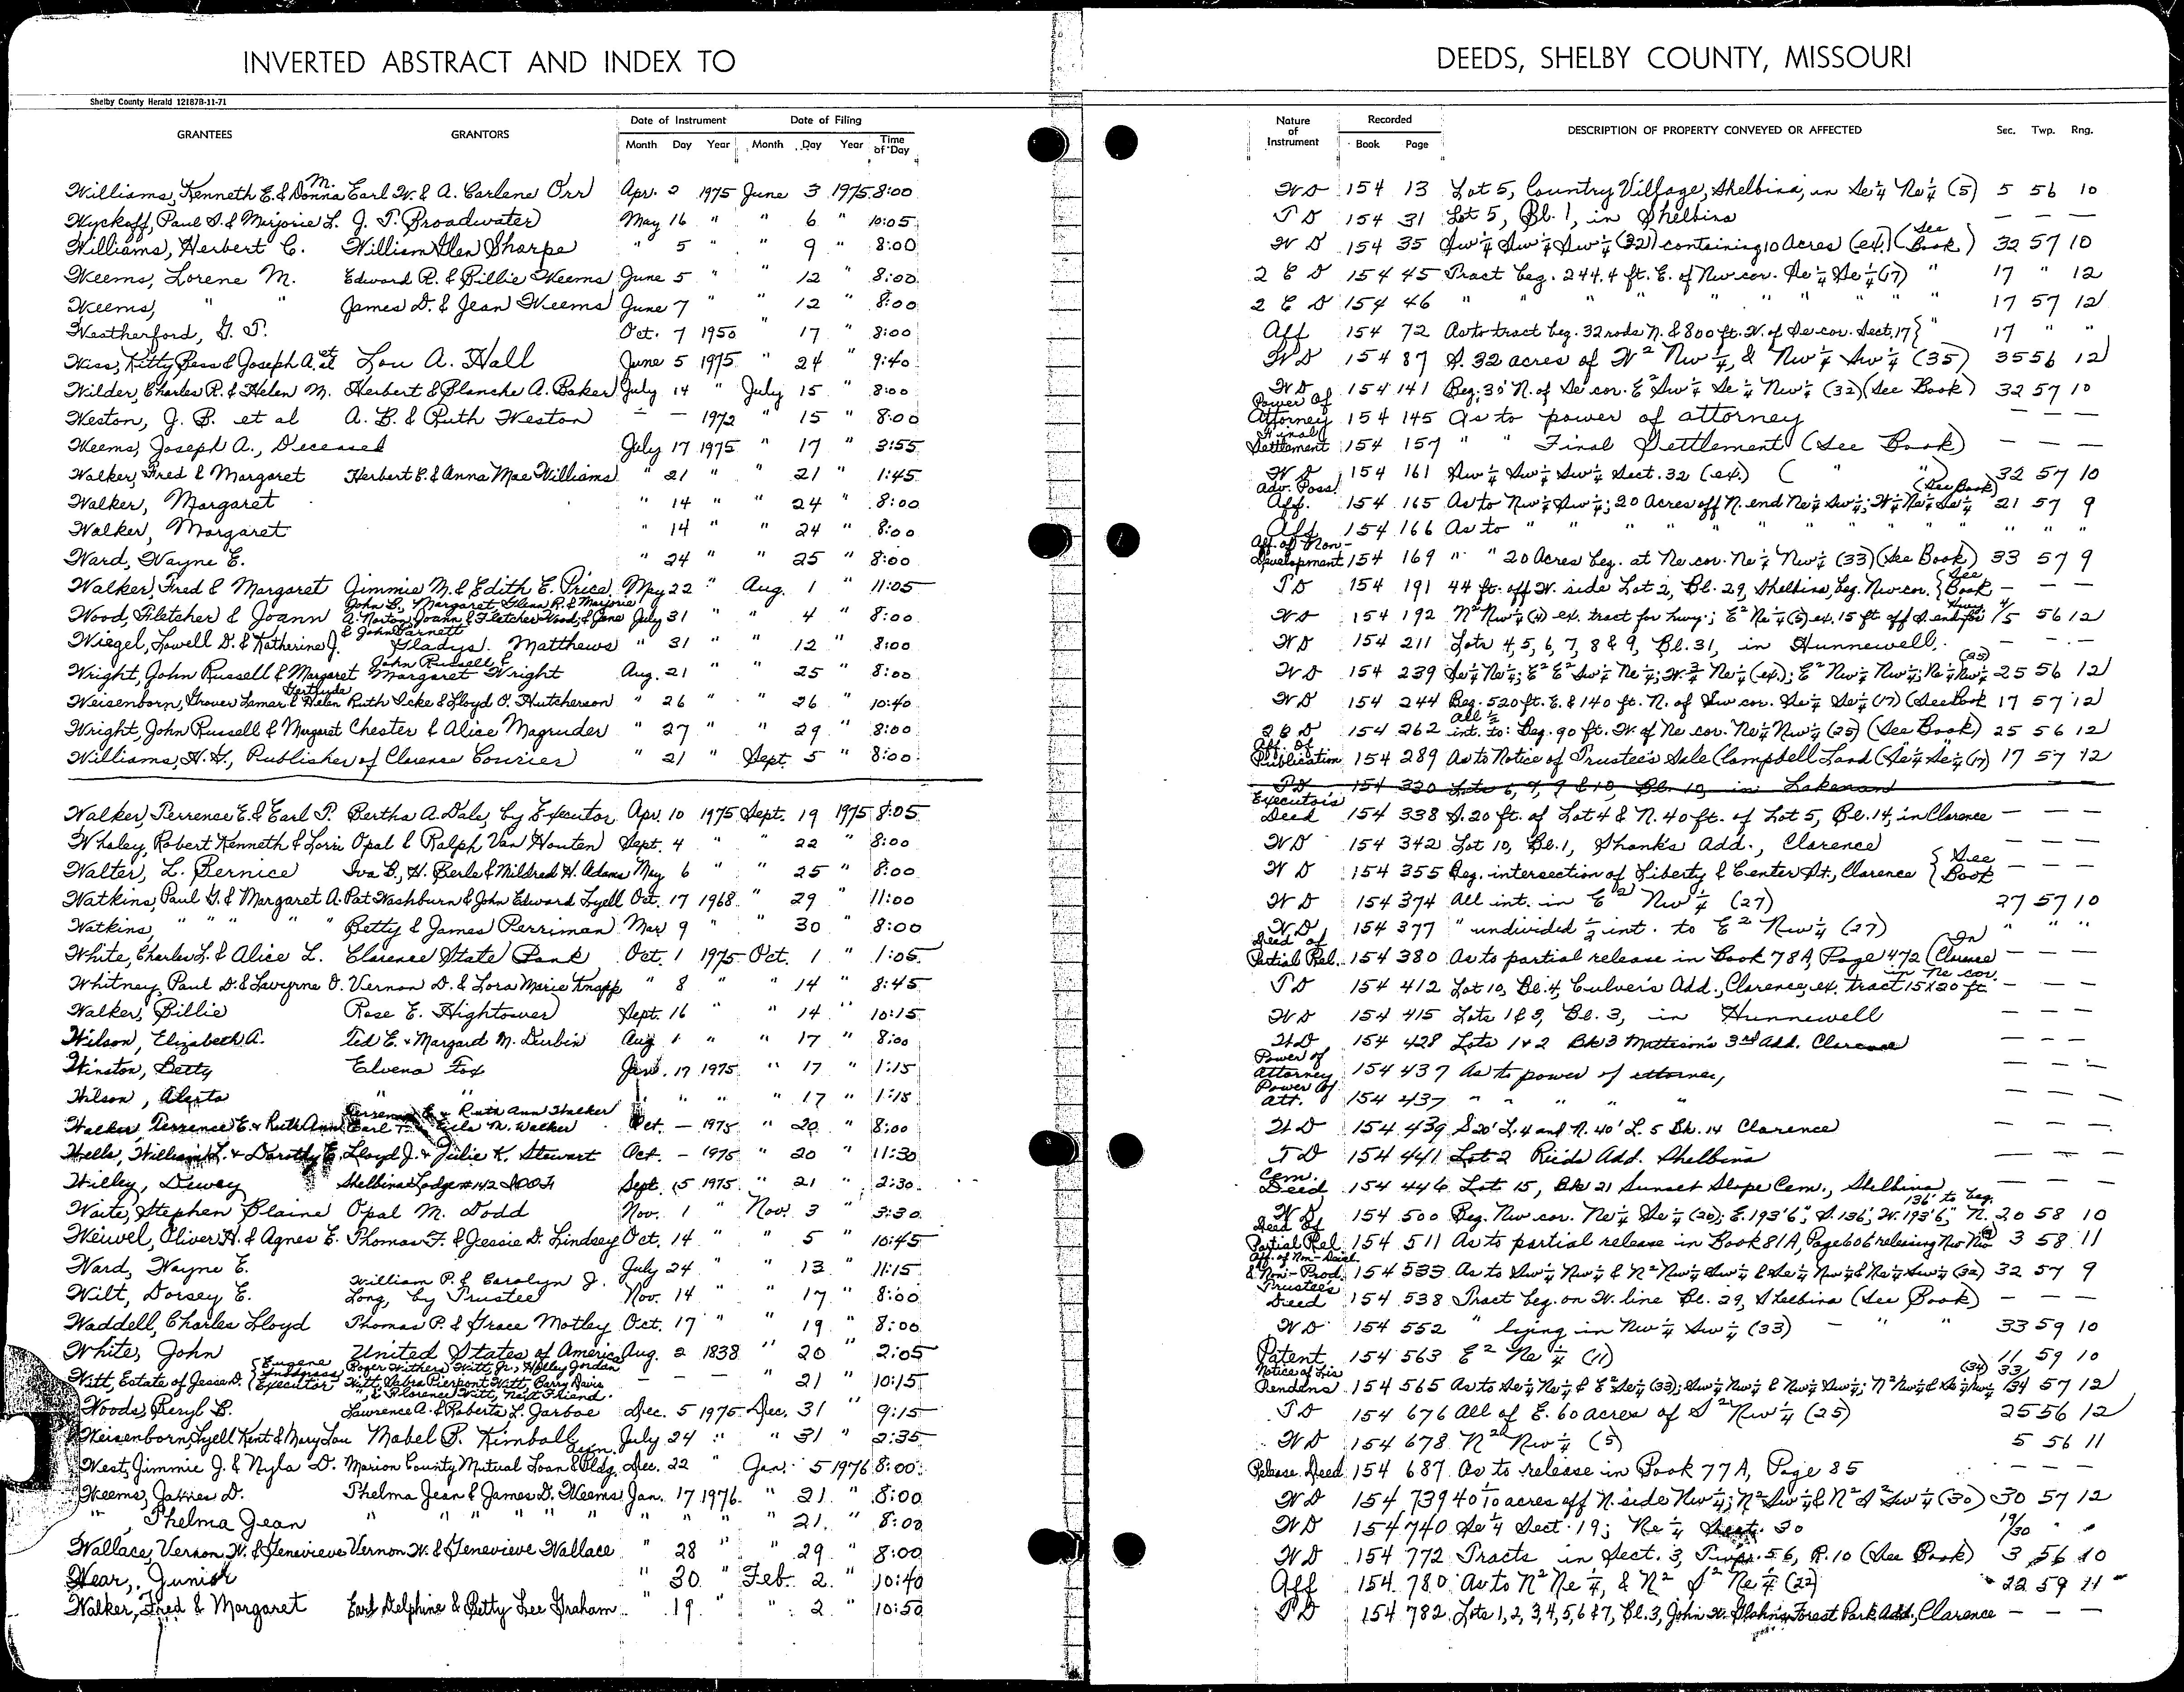 INVERTED ABSTRACT AND INDEX TO
DEEDS, SHELBY COUNTY, MISSOURI
Shelby County Herald 12187B-11-71
GRANTEES GRANTORS Date of Instrument Month Day Year Date of Filing Month Day Year Time of Day Nature of Instrument Recorded Book Page DESCRIPTION OF PROPERTY CONVEYED OR AFFECTED Sec. Twp. Rng.
Williams, Kenneth E. & Donna M. Earl W. & A. Carlene Orr Apr. 2 1975 June 3 1975 8:00 WD 154 13 Lot 5, Country Village, Shelbina, in Se¼ Ne¼ (5) 5 56 10
Wyckoff, Paul S. & Marjorie L. J. T. Broadwater May 16 " " 6 " 10:05 TD 154 31 Lot 5, Bl. 1, in Shelbina — — —
Williams, Herbert C. William Glen Sharpe " 5 " " 9 " 8:00 WD 154 35 Sw¼ Sw¼ Sw¼ (32) containing 10 Acres (ex.) (See Book) 32 57 10
Weems, Lorene M. Edward R. & Billie Weems June 5 " " 12 " 8:00 2 C D 154 45 Tract beg. 244.4 ft. E. of Nw cor. Se¼ Se¼ (17) " 17 " 12
Weems, " " James D. & Jean Weems June 7 " " 12 " 8:00 2 C D 154 46 " " " " " " " " 17 57 12
Weatherford, G. T. Oct. 7 1950 " 17 " 8:00 Aff 154 72 As to tract beg. 32 rods N. & 800 ft. W. of Se cor. Sect. 17 } " 17 " "
Wiss, Kitty Bess & Joseph A. et al Lou A. Hall June 5 1975 " 24 " 9:40 WD 154 87 S. 32 acres of W² Nw¼, & Nw¼ Sw¼ (35) 35 56 12
Wilder, Charles R. & Helen M. Herbert & Blanche A. Baker July 14 " July 15 " 8:00 WD 154 141 Beg. 30' N. of Se cor. E² Sw¼ Se¼ Nw¼ (32) (See Book) 32 57 10
Weston, J. B. et al A. B. & Ruth Weston — — 1972 " 15 " 8:00 Power of Attorney 154 145 As to power of attorney — — —
Weems, Joseph A., Deceased July 17 1975 " 17 " 3:55 Final Settlement 154 157 " " Final Settlement (See Book) — — —
Walker, Fred & Margaret Herbert C. & Anna Mae Williams " 21 " " 21 " 1:45 WD 154 161 Sw¼ Sw¼ Sw¼ Sect. 32 (ex.) ( " ") 32 57 10
Walker, Margaret " 14 " " 24 " 8:00 Adv. Poss. Aff. 154 165 As to Nw¼ Sw¼; 20 Acres off N. end Ne¼ Sw¼; W½ Ne¼ Se¼ (See Book) 21 57 9
Walker, Margaret " 14 " " 24 " 8:00 Aff. 154 166 As to " " " " " " " " " "
Ward, Wayne E. " 24 " " 25 " 8:00 Aff. of Non-Development 154 169 " " 20 Acres beg. at Ne cor. Ne¼ Nw¼ (33) (See Book) 33 57 9
Walker, Fred & Margaret Jimmie M. & Edith E. Price May 22 " Aug. 1 " 11:05 TD 154 191 44 ft. off W. side Lot 2, Bl. 29, Shelbina, beg. Nw cor. {See Book — — —
Wood, Fletcher & Joann John B., Margaret, Glenn R. & Marjorie A. Norton, Joann & Fletcher Wood, & Jane & John Barnett July 31 " " 4 " 8:00 WD 154 192 N² Nw¼ (4) ex. tract for hwy.; E² Ne¼ (5) ex. 15 ft off S. end for Hwy. 4/5 56 12
Wiegel, Lowell D. & Katherine J. Gladys Matthews " 31 " " 12 " 8:00 WD 154 211 Lots 4, 5, 6, 7, 8 & 9, Bl. 31, in Hunnewell — — —
Wright, John Russell & Margaret John Russell & Margaret Wright Aug. 21 " " 25 " 8:00 WD 154 239 Se¼ Ne¼; E² E² Sw¼ Ne¼; W ¾ Ne¼ (ex.); E² Nw¼ Nw¼; Ne¼ Nw¼ (25) 25 56 12
Weisenborn, Grover Lamar & Helen Gertrude Ruth Icke & Lloyd O. Hutcherson " 26 " " 26 " 10:40 WD 154 244 Beg. 520 ft. E. & 140 ft. N. of Sw cor. Se¼ Se¼ (17) (See Book 17 57 12
Wright, John Russell & Margaret Chester & Alice Magruder " 27 " " 29 " 8:00 2 C D 154 262 All ½ int. to: Beg. 90 ft. W. of Ne cor. Ne¼ Nw¼ (25) (See Book) 25 56 12
Williams, H. G., Publisher of Clarence Courier " 21 " Sept. 5 " 8:00 Aff. of Publication 154 289 As to Notice of Trustee's Sale (Campbell Land (Se¼ Se¼ (17) 17 57 12
TD 154 330 Lots 6, 7, 9 & 10, Bl. 10, in Lakenan — —
Walker, Terrence E. & Earl T. Bertha A. Dale, by Executor Apr. 10 1975 Sept. 19 1975 8:05 Executor's Deed 154 338 S. 20 ft. of Lot 4 & N. 40 ft. of Lot 5, Bl. 14, in Clarence — — —
Whaley, Robert Kenneth & Lorri Opal & Ralph Van Houten Sept. 4 " " 22 " 8:00 WD 154 342 Lot 10, Bl. 1, Shank's Add., Clarence — — —
Walter, L. Bernice Iva B., H. Berle & Mildred H. Adams May 6 " " 25 " 8:00 WD 154 355 Beg. intersection of Liberty & Center St., Clarence {See Book — — —
Watkins, Paul G. & Margaret A. Pat Washburn & John Edward Lyell Oct. 17 1968 " 29 " 11:00 WD 154 374 All int. in E² Nw¼ (27) 27 57 10
Watkins, " " " " Betty & James Perriman May 9 " " 30 " 8:00 WD 154 377 " undivided ½ int. to E² Nw¼ (27) " " "
White, Charles L. & Alice L. Clarence State Bank Oct. 1 1975 Oct. 1 " 1:05 Deed of Partial Rel. 154 380 As to partial release in Book 78A, Page 472 (In Clarence — — —
Whitney, Paul D. & Lavyrne O. Vernon D. & Lora Marie Knapp " 8 " " 14 " 8:45 TD 154 412 Lot 10, Bl. 4, Culver's Add., Clarence, ex. tract 15 x 20 ft in Ne cor. — — —
Walker, Billie Rose E. Hightower Sept. 16 " 14 " 10:15 WD 154 415 Lots 1 & 3, Bl. 3, in Hunnewell — — —
Wilson, Elizabeth A. Ted E. & Margaret M. Durbin Aug 1 " " 17 " 8:00 WD 154 428 Lots 1 & 2 Bk 3 Matteson's 3rd Add. Clarence — — —
Winston, Betty Elvena Fox Jan. 17 1975 " 17 " 1:15 Power of Attorney 154 437 As to power of attorney — — —
Wilson, Alerta " " " " " " 17 " 1:15 Power of Att. 154 437 " " " " " — — —
Walker, Terrence E. & Ruth Ann Terrence E. & Ruth Ann Walker Earl T. & Lela M. Walker Oct. — 1975 " 20 " 8:00 WD 154 439 S 20' L. 4 and N. 40' L. 5 Bk. 14 Clarence — — —
Wells, William L. & Dorothy E. Lloyd J. & Julie K. Stewart Oct. — 1975 " 20 " 11:30 TD 154 441 Lot 2 Reeds Add. Shelbina — — —
Willey, Dewey Shelbina Lodge #142 IOOF Sept. 15 1975 " 21 " 2:30 Cem. Deed 154 446 Lot 15, Bk 21 Sunset Slope Cem., Shelbina — — —
Waite, Stephen Blaine Opal M. Dodd Nov. 1 " Nov. 3 " 3:30 WD 154 500 Beg. Nw cor. Ne¼ Se¼ (20); E. 193'6", S. 136', W. 193'6", N. 136' to beg. 20 58 10
Weiwel, Oliver H. & Agnes E. Thomas F. & Jessie D. Lindsey Oct. 14 " " 5 " 10:45 Deed of Partial Rel. 154 511 As to partial release in Book 81A, Page 606 releasing Nw Nw 3 58 11
Ward, Wayne E. July 24 " " 13 " 11:15 Aff. of Non-Devel. & Non-Prod. 154 533 As to Sw¼ Nw¼ & N² Nw¼ Sw¼ & Se¼ Nw¼ & Ne¼ Sw¼ (32) 32 57 9
Wilt, Dorsey E. William P. & Carolyn J. Long, by Trustee Nov. 14 " " 17 " 8:00 Trustee's Deed 154 538 Tract beg. on W. line Bl. 29, Shelbina (See Book) — — —
Waddell, Charles Lloyd Thomas P. & Grace Motley Oct. 17 " " 19 " 8:00 WD 154 552 " lying in Nw¼ Sw¼ (33) — " " 33 59 10
White, John United States of America Aug. 2 1838 " 20 " 2:05 Patent 154 563 E² Ne¼ (11) 11 59 10
Witt, Estate of Jesse D. {Eugene Executor Roger Withers Witt, Jr., Holley Jordan Witt, Sabra Pierpont Witt, Barry Davis " , & Florence Witt, Next Friend. — — — " 21 " 10:15 Notice of Lis Pendens 154 565 As to Se¼ Ne¼ & E² Se¼ (33); Sw¼ Nw¼ & Nw¼ Sw¼; N² Nw¼ & Se¼ Nw¼ (34) 33/34 57 12
Woods, Beryl B. Lawrence A. & Roberta L. Jarboe Dec. 5 1975 Dec. 31 " 9:15 TD 154 676 All of E. 60 acres of S² Nw¼ (25) 25 56 12
Weisenborn, Lyell Kent & Mary Lou Mabel P. Kimball July 24 " " 31 " 2:35 WD 154 678 N² Nw¼ (5) 5 56 11
West, Jimmie J. & Nyla D. Marion County Mutual Loan & Bldg. Assn. Dec. 22 " Jan. 5 1976 8:00 Release Deed 154 687 As to release in Book 77A, Page 85 — — —
Weems, James D. Thelma Jean & James D. Weems Jan. 17 1976 " 21 " 8:00 WD 154 739 40 acres off N. side Nw¼; N² Sw¼ & N² S² Sw¼ (30) 30 57 12
" , Thelma Jean " " " " " " " " " 21 " 8:00 WD 154 740 Se¼ Sect. 19; Ne¼ Sect. 30 19/30 " "
Wallace, Vernon W. & Genevieve Vernon W. & Genevieve Wallace " 28 " " 29 " 8:00 WD 154 772 Tracts in Sect. 3, Twp. 56, R. 10 (See Book) 3 56 10
Wear, Junior " 30 " Feb. 2 " 10:40 Aff 154 780 As to N² Ne¼, & N² S² Ne¼ (22) 22 59 11
Walker, Fred & Margaret Earl Delphine & Betty Lee Graham " 19 " " 2 " 10:50 TD 154 782 Lots 1, 2, 3, 4, 5, 6 & 7, Bl. 3, John W. Forest Park Add., Clarence — — —